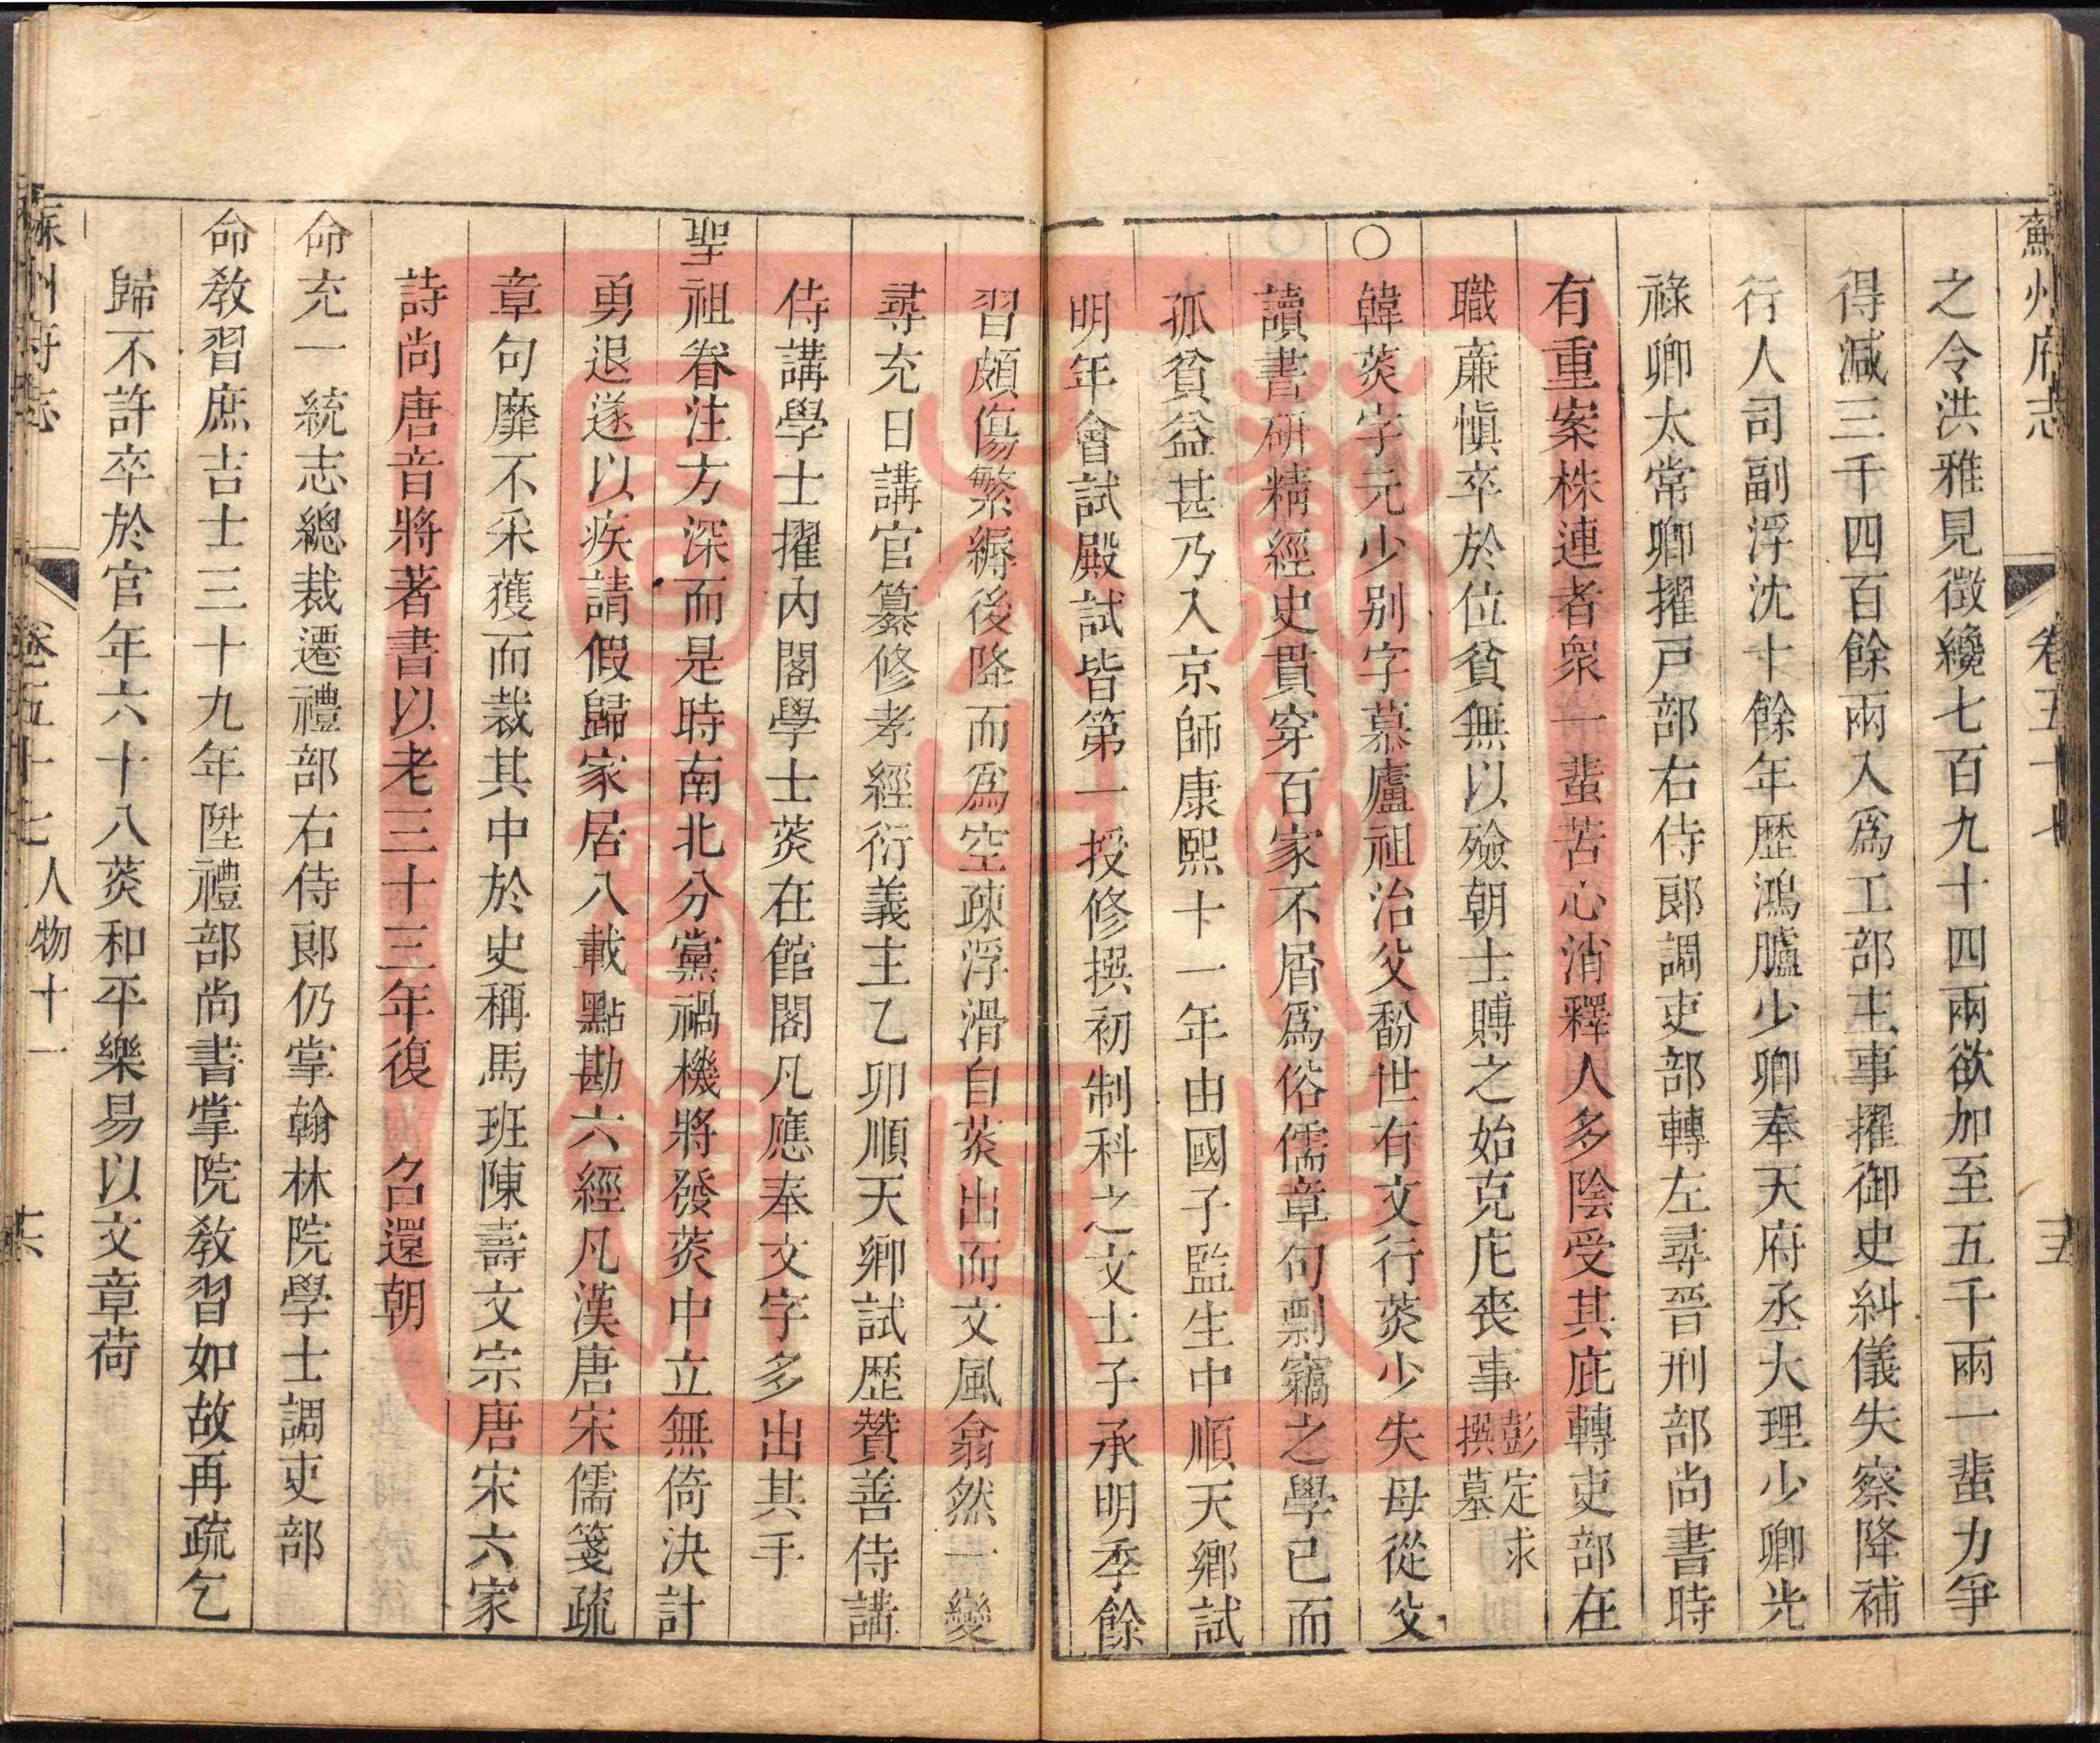 蘇州府志 卷五十七 十五
之令洪雅見徵纔七百九十四兩欲加至五千兩一蜚力爭
得減三千四百餘兩入爲工部主事擢御史糾儀失察降補
行人司副浮沈十餘年歷鴻臚少卿奉天府丞大理少卿光
祿卿太常卿擢戸部右侍郎調吏部轉左尋晉刑部尚書時
有重案株連者衆一蜚苦心消釋人多陰受其庇轉吏部在
職廉愼卒於位貧無以殮朝士賻之始克庀喪事彭定求撰墓
○韓菼字元少別字慕廬祖治父馚世有文行菼少失母從父
讀書研精經史貫穿百家不屑爲俗儒章句剽竊之學已而
孤貧益甚乃入京師康熙十一年由國子監生中順天鄉試
明年會試殿試皆第一授修撰初制科之文士子承明季餘
習頗傷繁縟後降而爲空疎浮滑自菼出而文風翕然一變
尋充日講官纂修孝經衍義主乙卯順天鄉試歷贊善侍講
侍講學士擢內閣學士菼在館閣凡應奉文字多出其手
聖祖眷注方深而是時南北分黨禍機將發菼中立無倚決計
勇退遂以疾請假歸家居八載點勘六經凡漢唐宋儒箋疏
章句靡不采獲而裁其中於史稱馬班陳壽文宗唐宋六家
詩尚唐音將著書以老三十三年復 召還朝
命充一統志總裁遷禮部右侍郎仍掌翰林院學士調吏部
命教習庶吉士三十九年陞禮部尚書掌院教習如故再疏乞
歸不許卒於官年六十八菼和平樂易以文章荷
蘇州府志 卷五十七 人物十一 十六